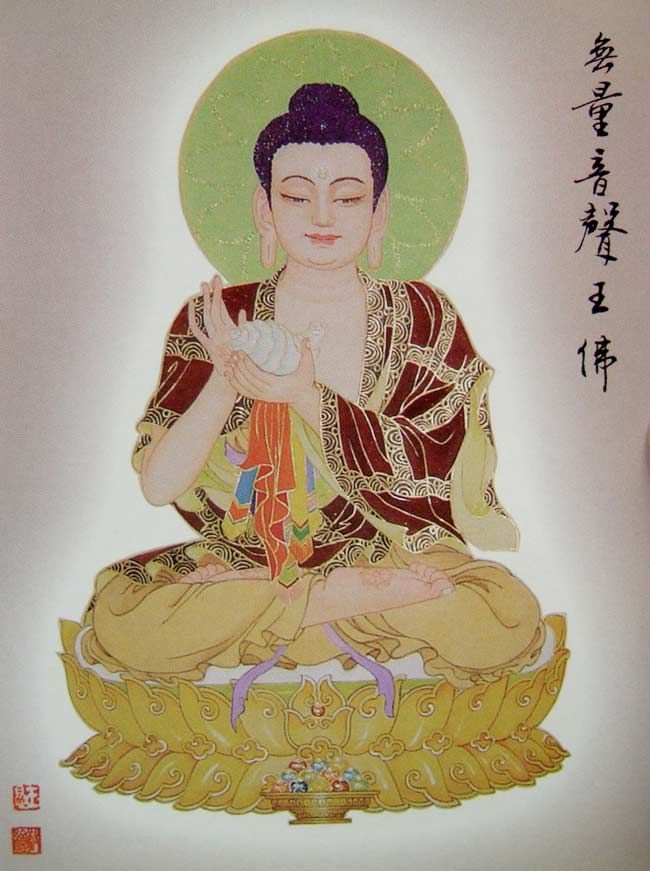 無量音聲王佛